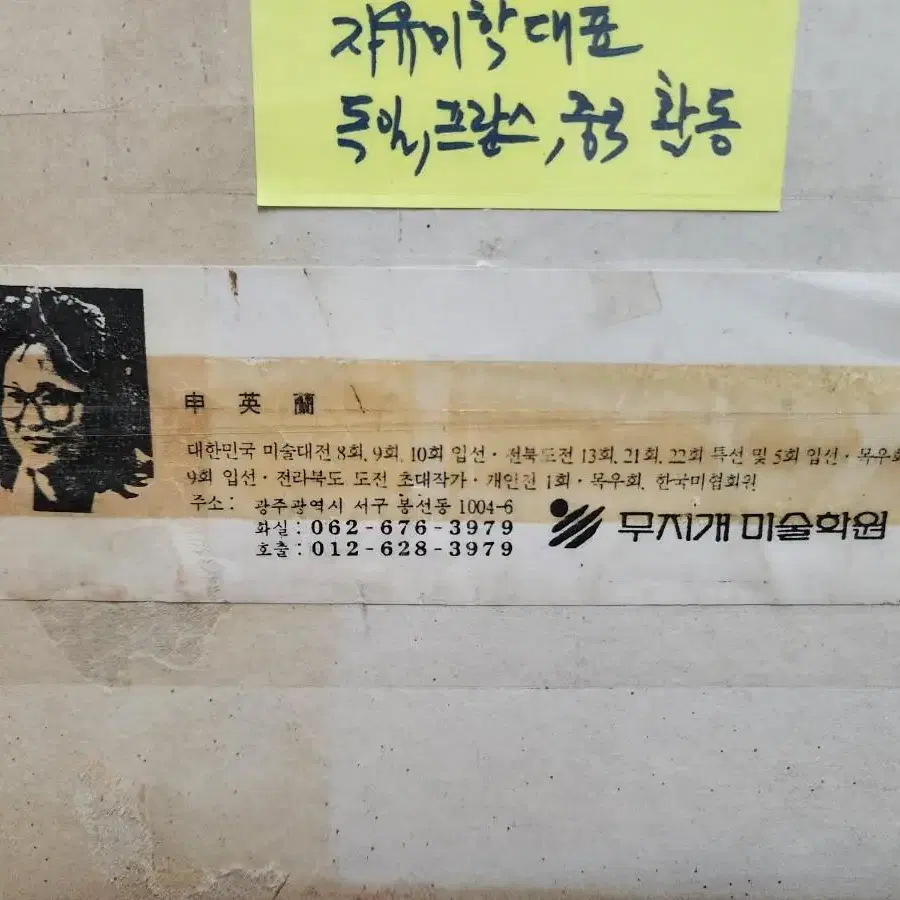 자유미학대표
독일, 프랑스, 중국 활동
申英蘭
대한민국 미술대전 8회, 9회, 10회 입선 · 전북도전 13회, 21회, 22회 특선 및 5회 입선 · 목우회
9회 입선 · 전라북도 도전 초대작가 · 개인전 1회 · 목우회, 한국미협회원
주소 : 광주광역시 서구 봉선동 1004-6
화실 : 062-676-3979
호출 : 012-628-3979
무지개미술학원